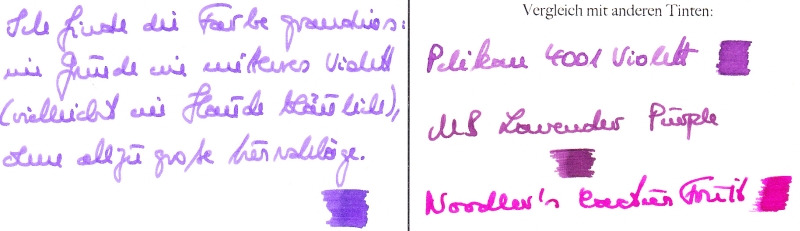 Ich finde die Farbe grandios:
im Grunde ein mittleres Violett
(vielleicht im Hauche bläulich),
ohne allzu große
Vergleich mit anderen Tinten:
Pelikan 4001 Violett
MB Lavender Purple
Noodler's Cactus Fruit